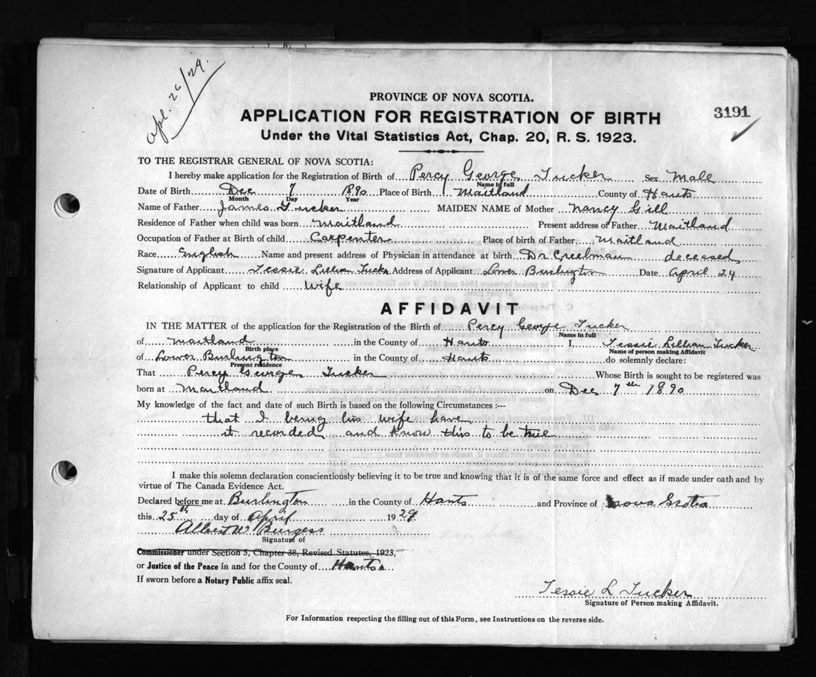 Apl. 26/29.
PROVINCE OF NOVA SCOTIA.
APPLICATION FOR REGISTRATION OF BIRTH
3191
Under the Vital Statistics Act, Chap. 20, R. S. 1923.
TO THE REGISTRAR GENERAL OF NOVA SCOTIA:
I hereby make application for the Registration of Birth of Percy George Tucker Sex Male
Name in full
Date of Birth Dec 7 1890 Place of Birth Maitland County of Hants
Month Day Year
Name of Father James Tucker MAIDEN NAME of Mother Nancy Gill
Residence of Father when child was born Maitland Present address of Father Maitland
Occupation of Father at Birth of child Carpenter Place of birth of Father Maitland
Race English Name and present address of Physician in attendance at birth Dr Creelman deceased
Signature of Applicant Tessie Lillian Tucker Address of Applicant Lower Burlington Date April 24
Relationship of Applicant to child wife
AFFIDAVIT
IN THE MATTER of the application for the Registration of the Birth of Percy George Tucker
Name in full
of Maitland in the County of Hants I, Tessie Lillian Tucker
Birth place Name of person making Affidavit
of Lower Burlington in the County of Hants do solemnly declare:
Present residence
That Percy George Tucker Whose Birth is sought to be registered was
born at Maitland on Dec 7th 1890
My knowledge of the fact and date of such Birth is based on the following Circumstances :—
that I being his wife have
it recorded and know this to be true
I make this solemn declaration conscientiously believing it to be true and knowing that it is of the same force and effect as if made under oath and by
virtue of The Canada Evidence Act.
Declared before me at Burlington in the County of Hants and Province of Nova Scotia
this 25th day of April 1929
Albert W Burgess
Signature of
Commissioner under Section 5, Chapter 38, Revised Statutes, 1923,
or Justice of the Peace in and for the County of Hants
If sworn before a Notary Public affix seal.
Tessie L Tucker
Signature of Person making Affidavit.
For Information respecting the filling out of this Form, see Instructions on the reverse side.